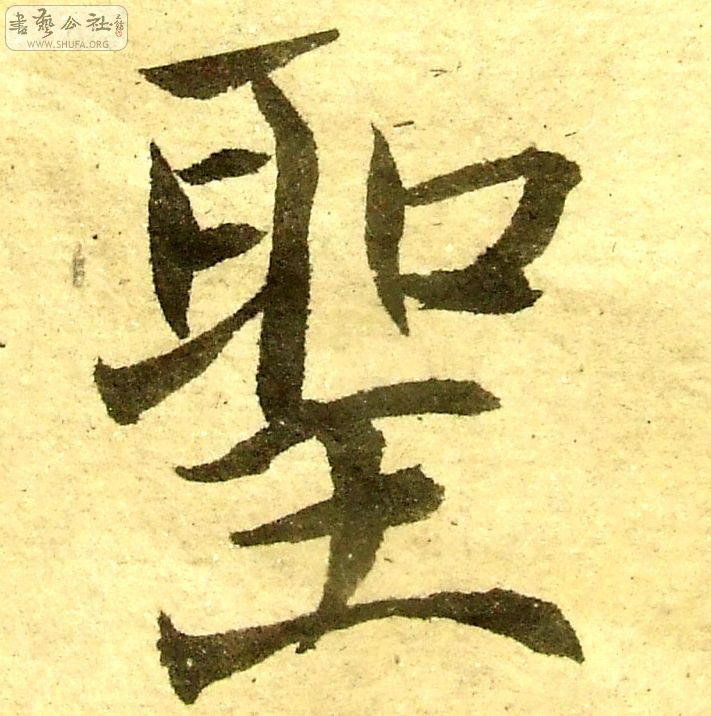 書藝公社
WWW.SHUFA.ORG
聖